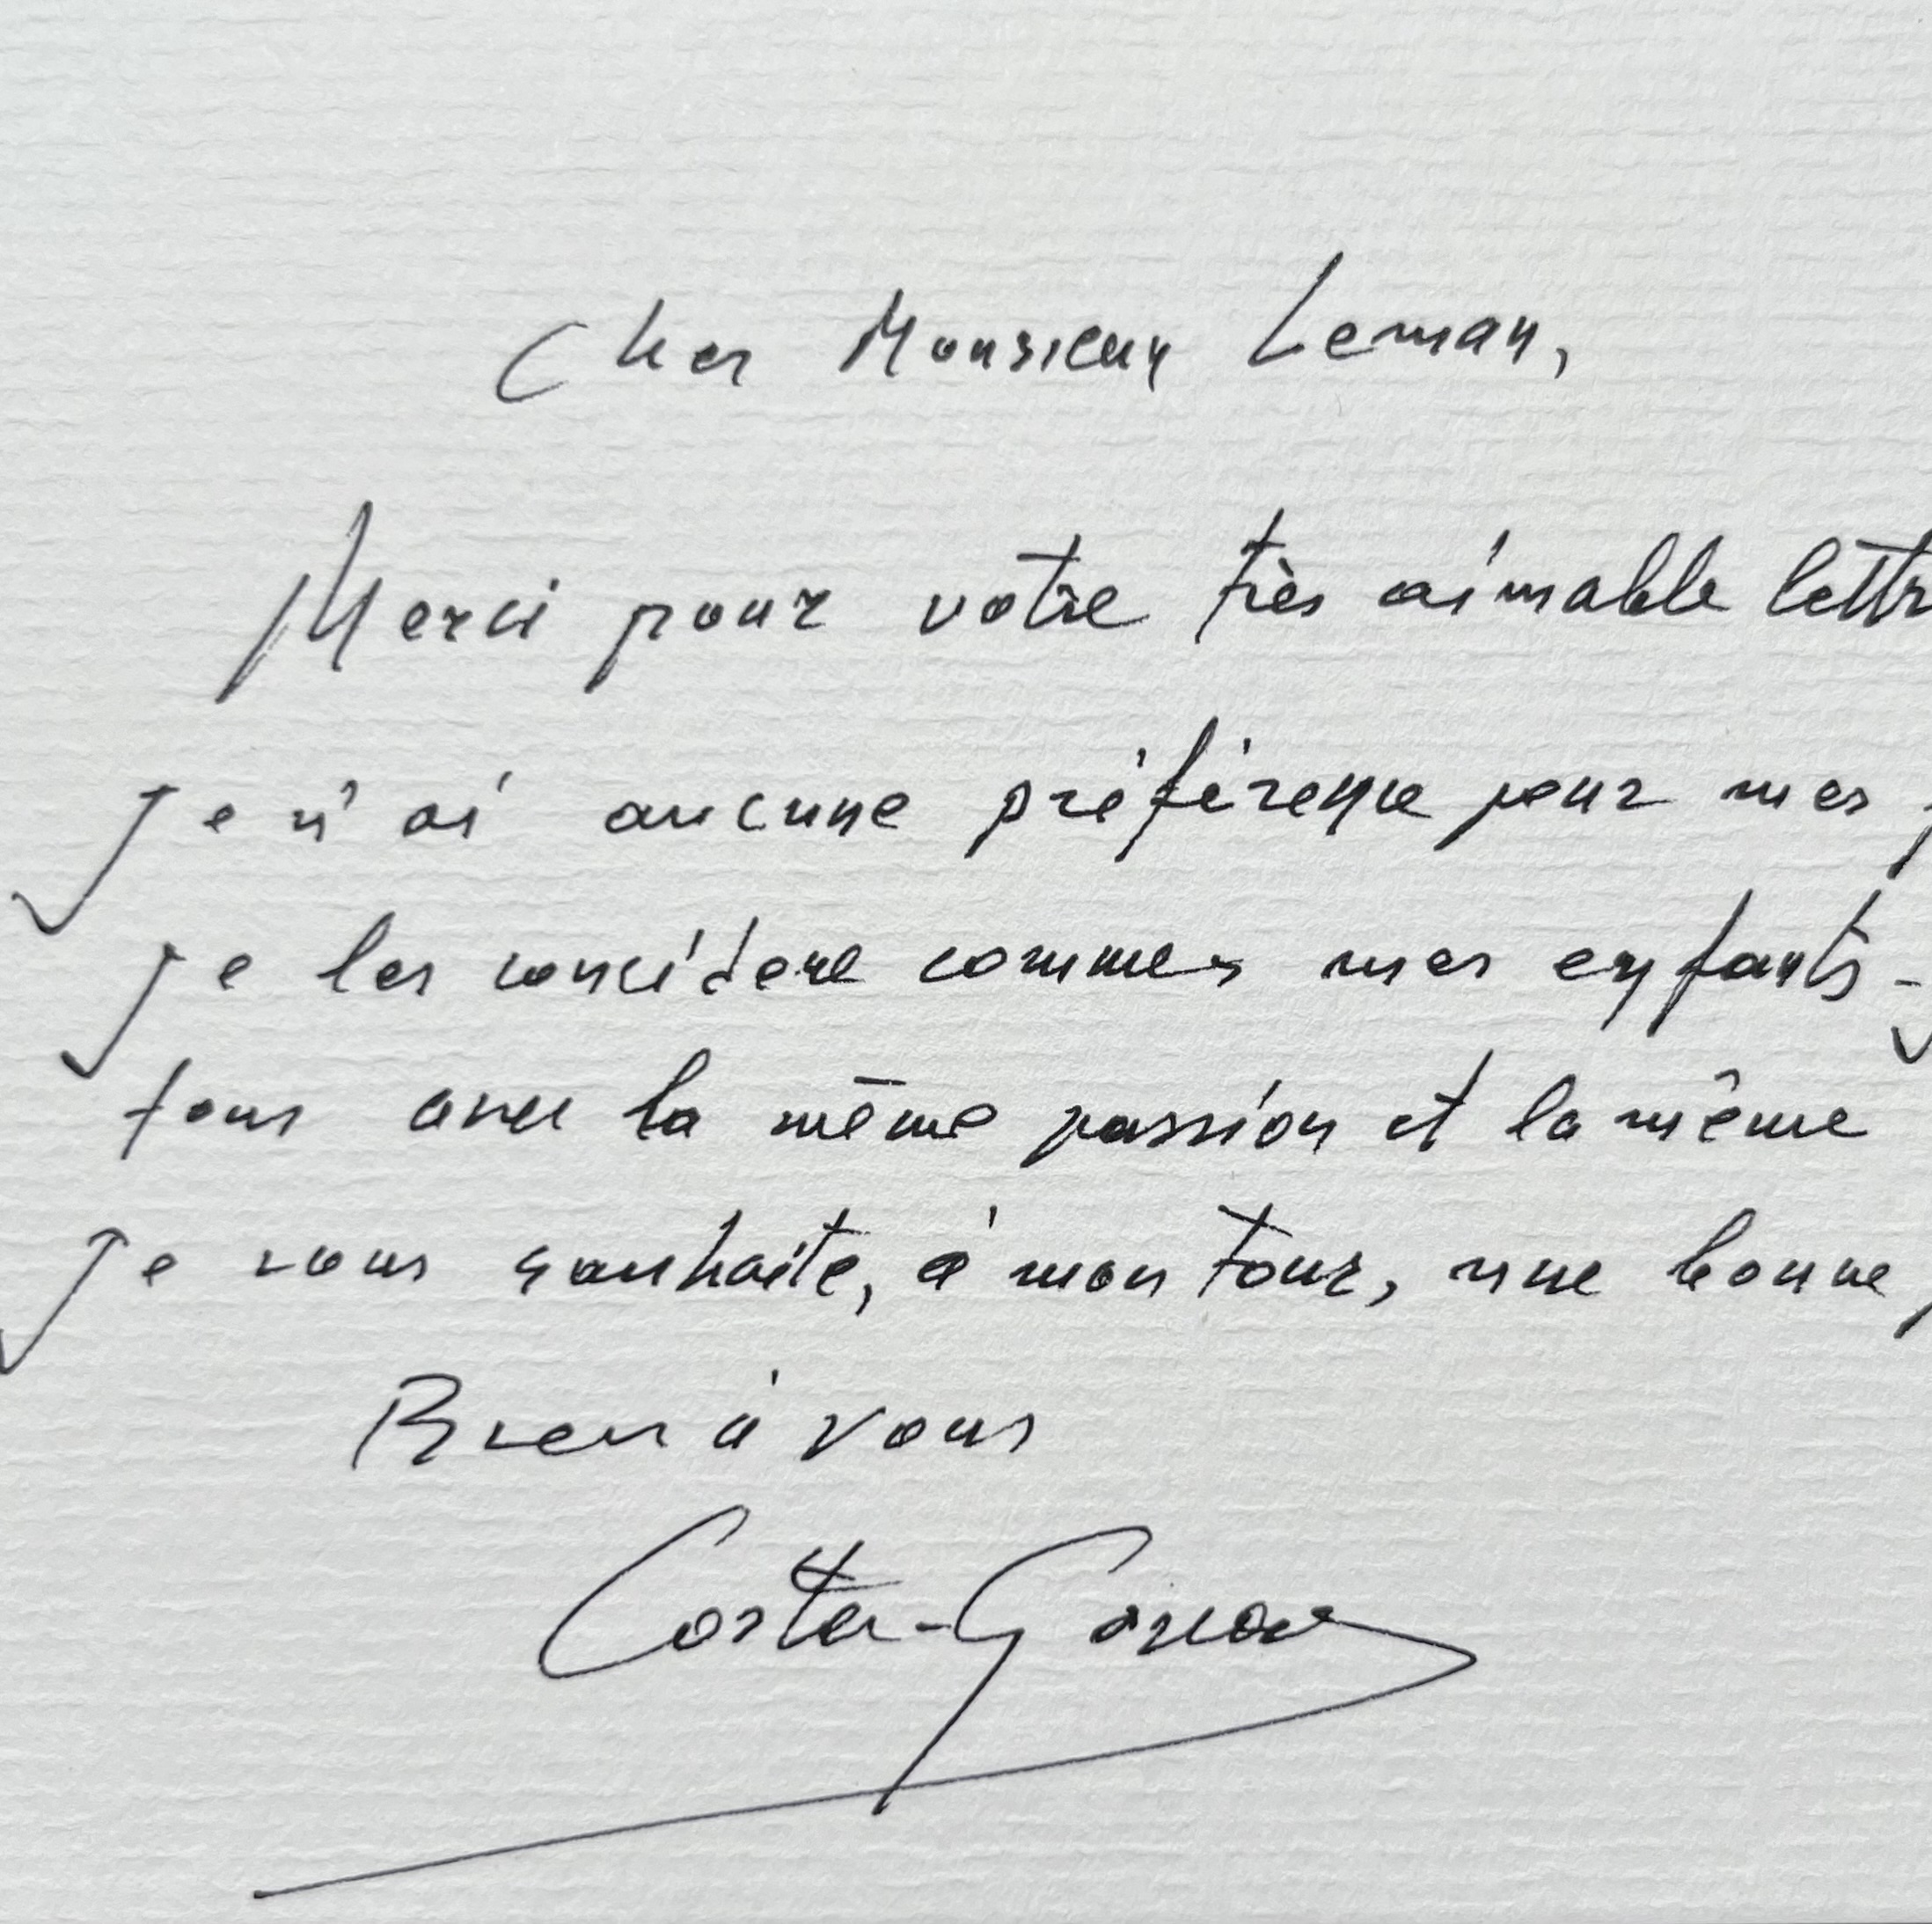 Cher Monsieur Leman,
Merci pour votre très aimable lettr
Je n'ai aucune préférence pour mes
je les concidere commes mes enfants -
tous avec la même passion et la même
Je vous souhaite, à mon tour, une bonne
Bien à vous
Costa-Gavras